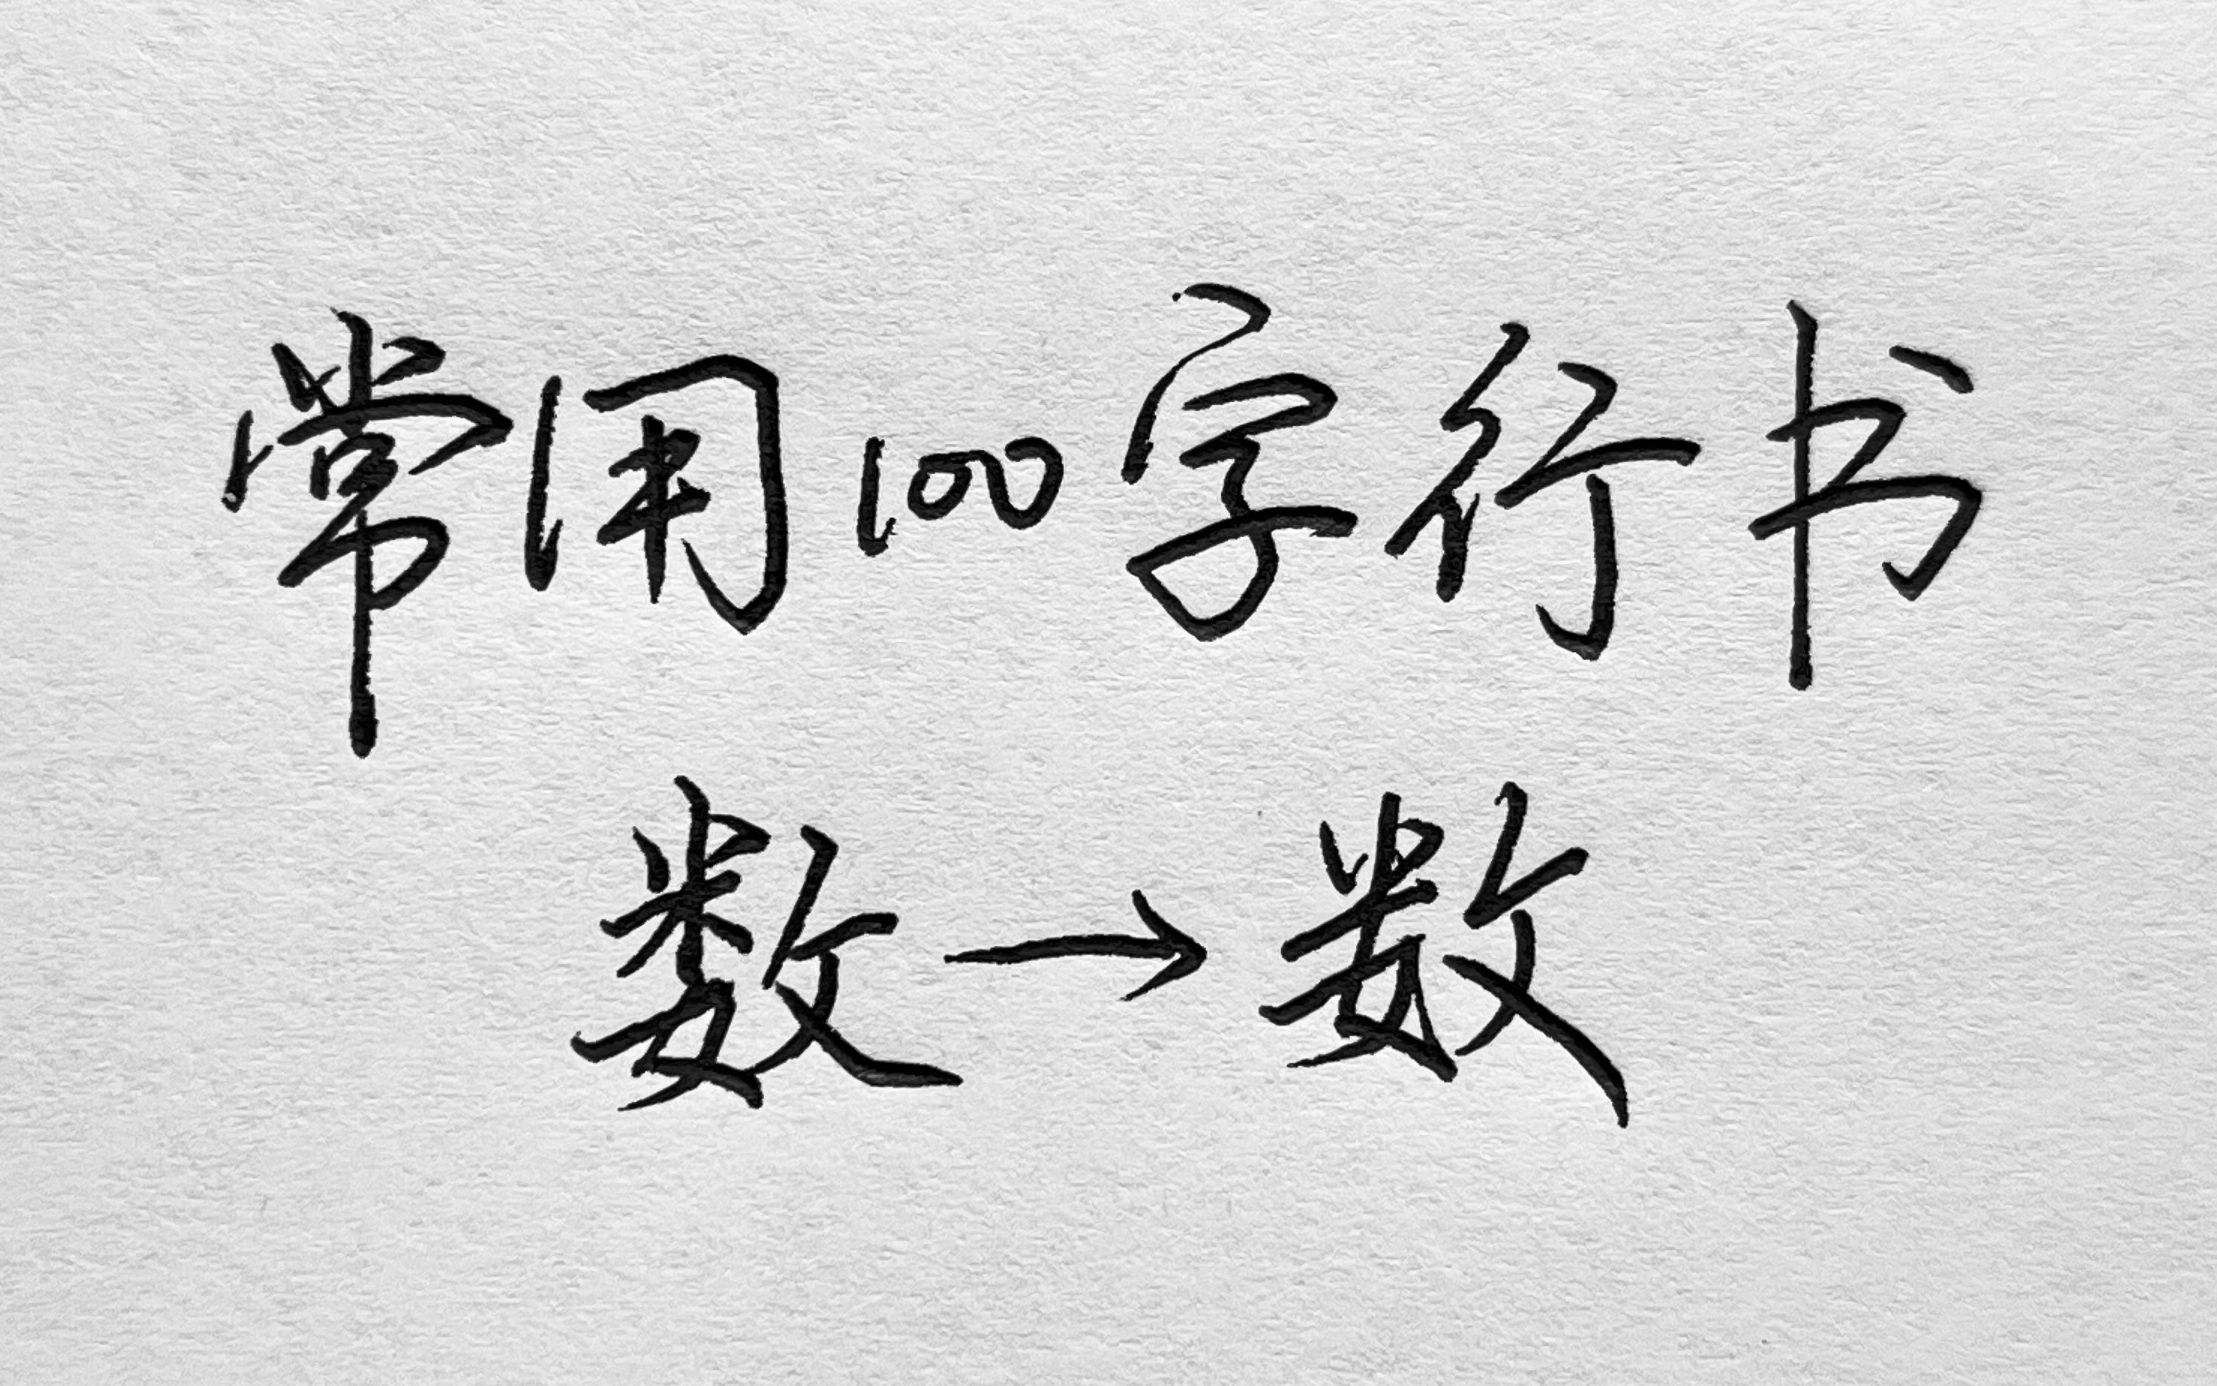 常用100字行书
数→数